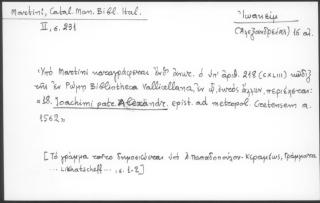 Martini, Catal. Man. Bibl. Ital.
II, s. 231
Ἰωακείμ
(Ἀλεξανδρείας) 16 αἰ.
«Ὑπὸ Martini καταγράφεται ὑπ' ἀριθ. 218 (CXLIII) κῶδιξ
τῆς ἐν Ῥώμῃ Bibliotheca Vallicellana, ἐν ᾧ, ἐκτὸς ἄλλων, περιέχεται:
«18. Joachimi patr. Alexandr. epist. ad metropol. Cretensem a.
1562»
[Τὸ γράμμα τοῦτο δημοσιεύεται ὑπὸ Ἀ. Παπαδοπούλου-Κεραμέως, Γράμματα
... Likhatscheff ..., σ. 1-2]